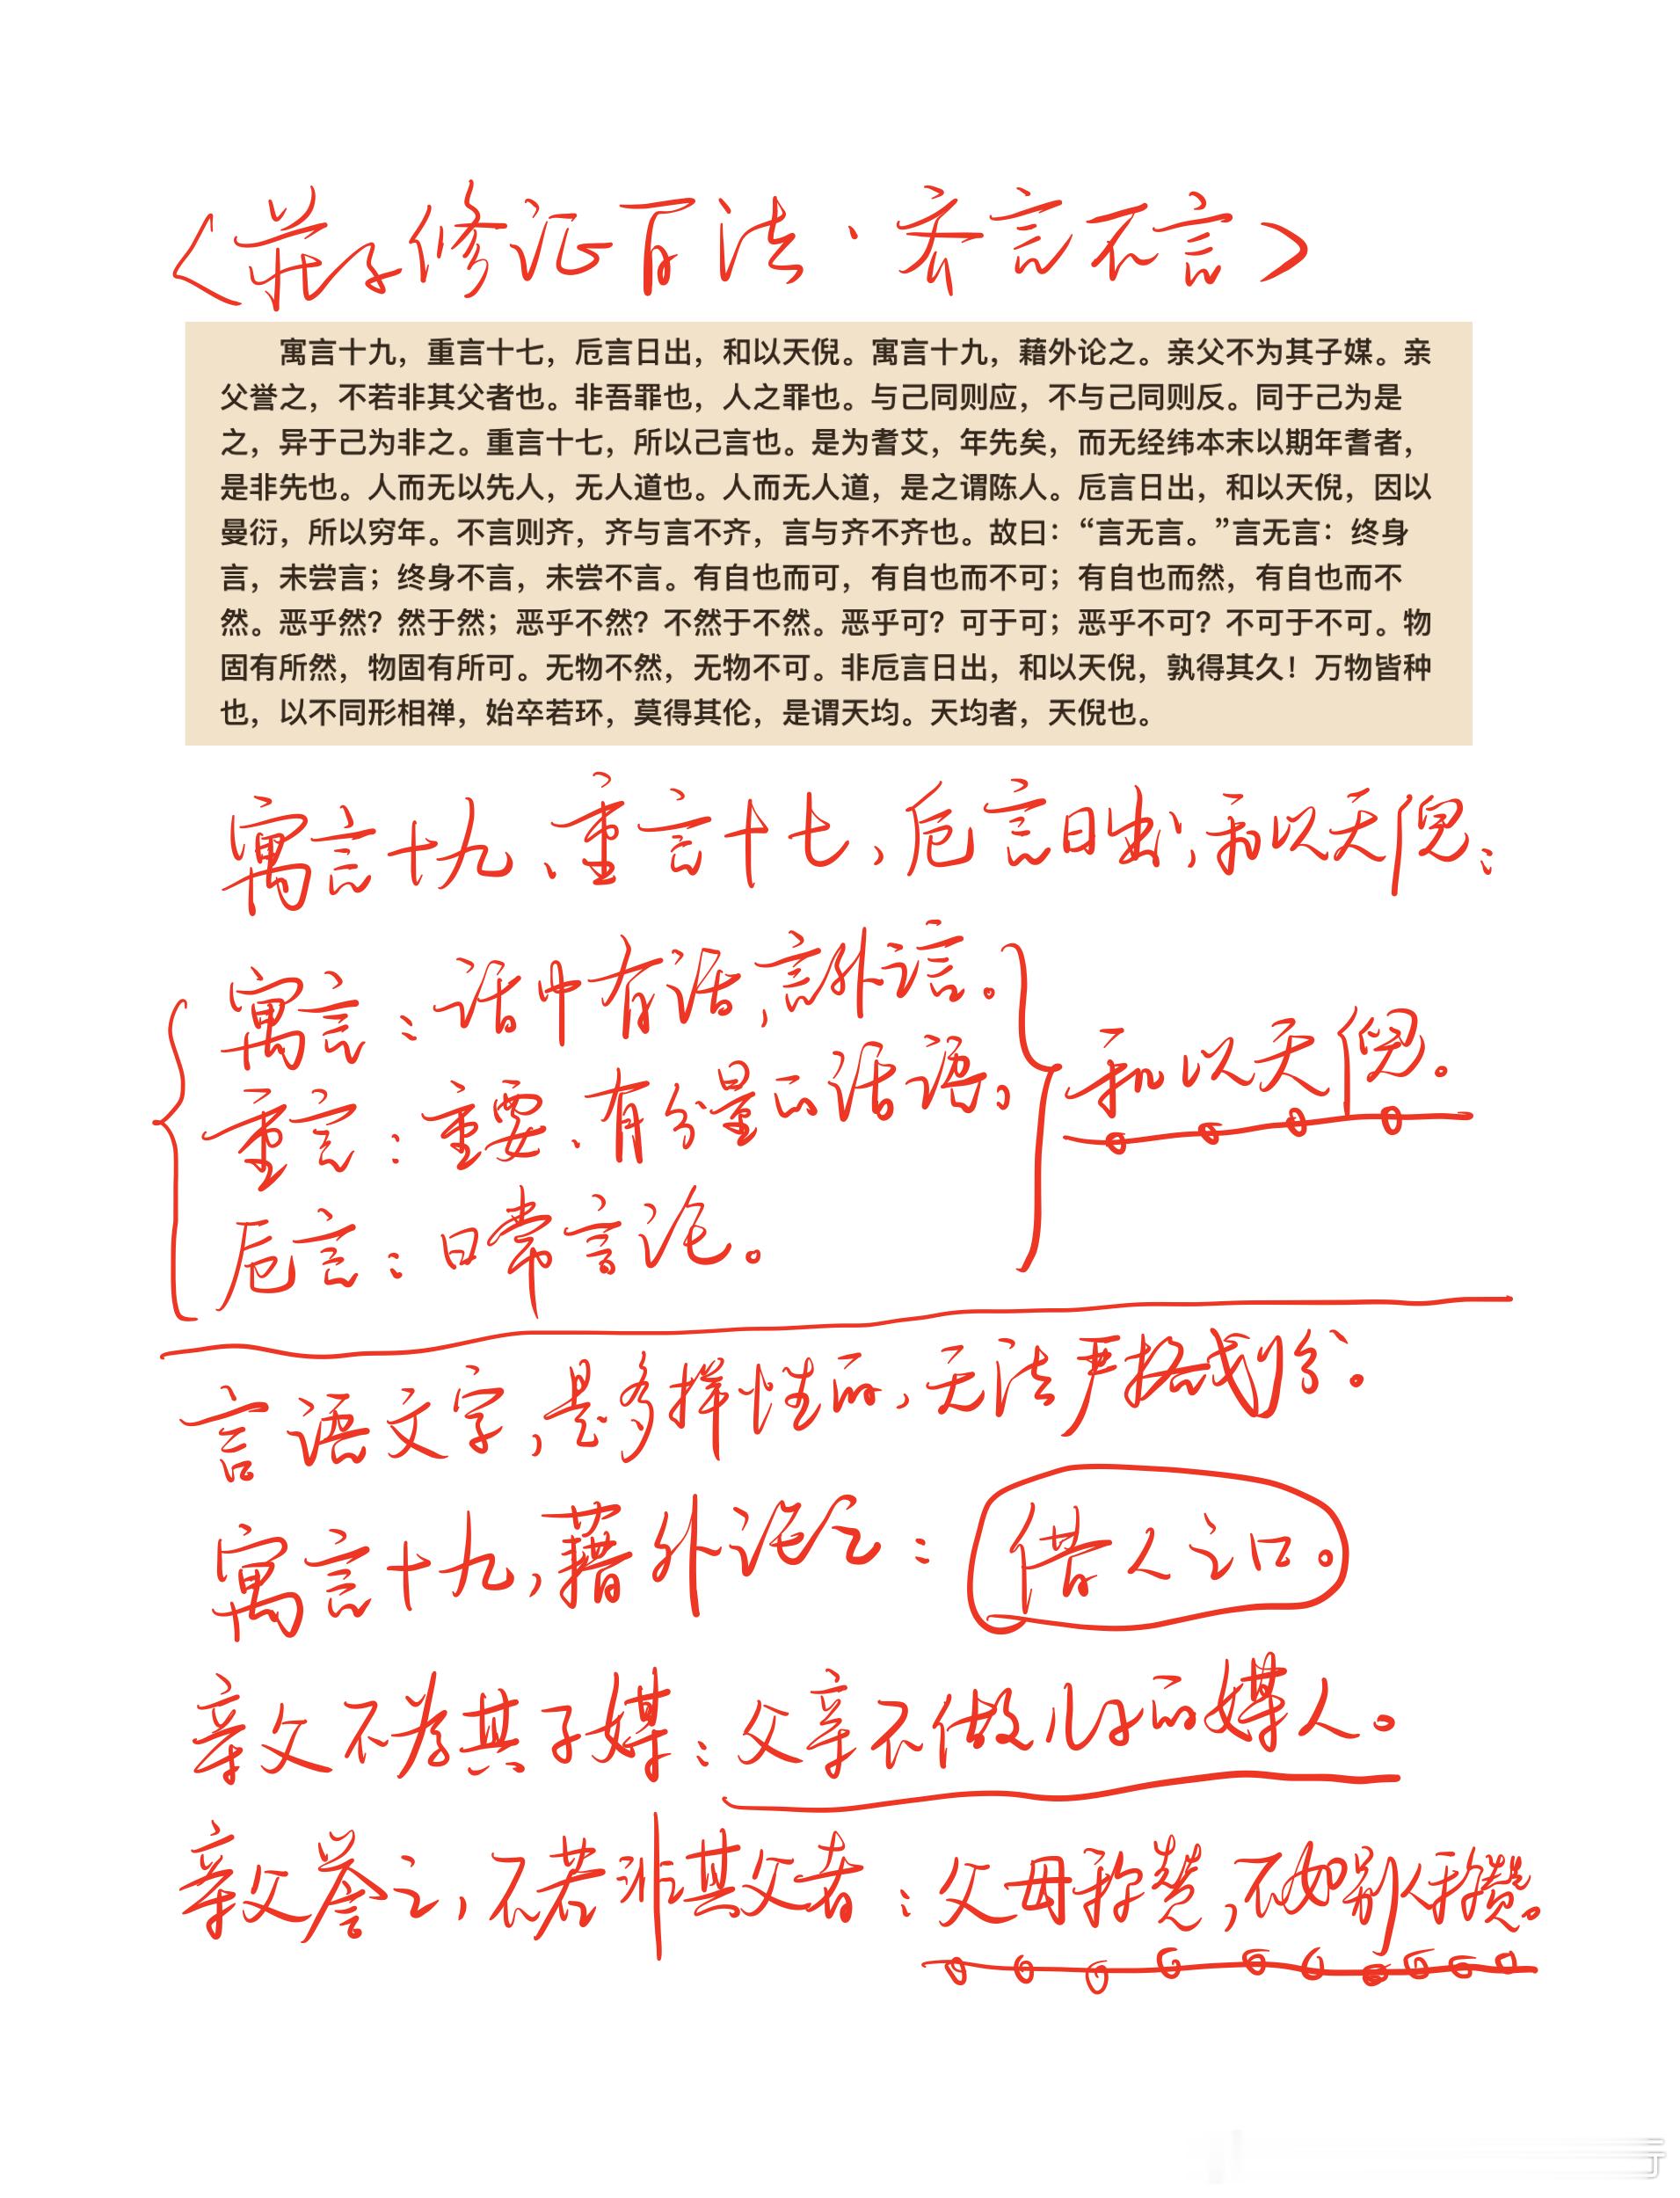 <莊子修证百法·齐言不言>
寓言十九，重言十七，卮言日出，和以天倪。寓言十九，藉外论之。亲父不为其子媒。亲
父誉之，不若非其父者也。非吾罪也，人之罪也。与己同则应，不与己同则反。同于己为是
之，异于己为非之。重言十七，所以己言也。是为耆艾，年先矣，而无经纬本末以期年耆者，
是非先也。人而无以先人，无人道也。人而无人道，是之谓陈人。卮言日出，和以天倪，因以
曼衍，所以穷年。不言则齐，齐与言不齐，言与齐不齐也。故曰：“言无言。”言无言：终身
言，未尝言；终身不言，未尝不言。有自也而可，有自也而不可；有自也而然，有自也而不
然。恶乎然？然于然；恶乎不然？不然于不然。恶乎可？可于可；恶乎不可？不可于不可。物
固有所然，物固有所可。无物不然，无物不可。非卮言日出，和以天倪，孰得其久！万物皆种
也，以不同形相禅，始卒若环，莫得其伦，是谓天均。天均者，天倪也。
寓言十九、重言十七，卮言日出，和以天倪：
寓言：话中有话，言外之言。
重言：重要、有分量的话语，
和以天倪。
卮言：日常言论。
言语文字，是多样性的，无法严格划分。
寓言十九，藉外论之：借人之口。
亲父不为其子媒：父亲不做儿子的媒人。
亲父誉之，不若非其父者：父母称赞，不如别人称赞。